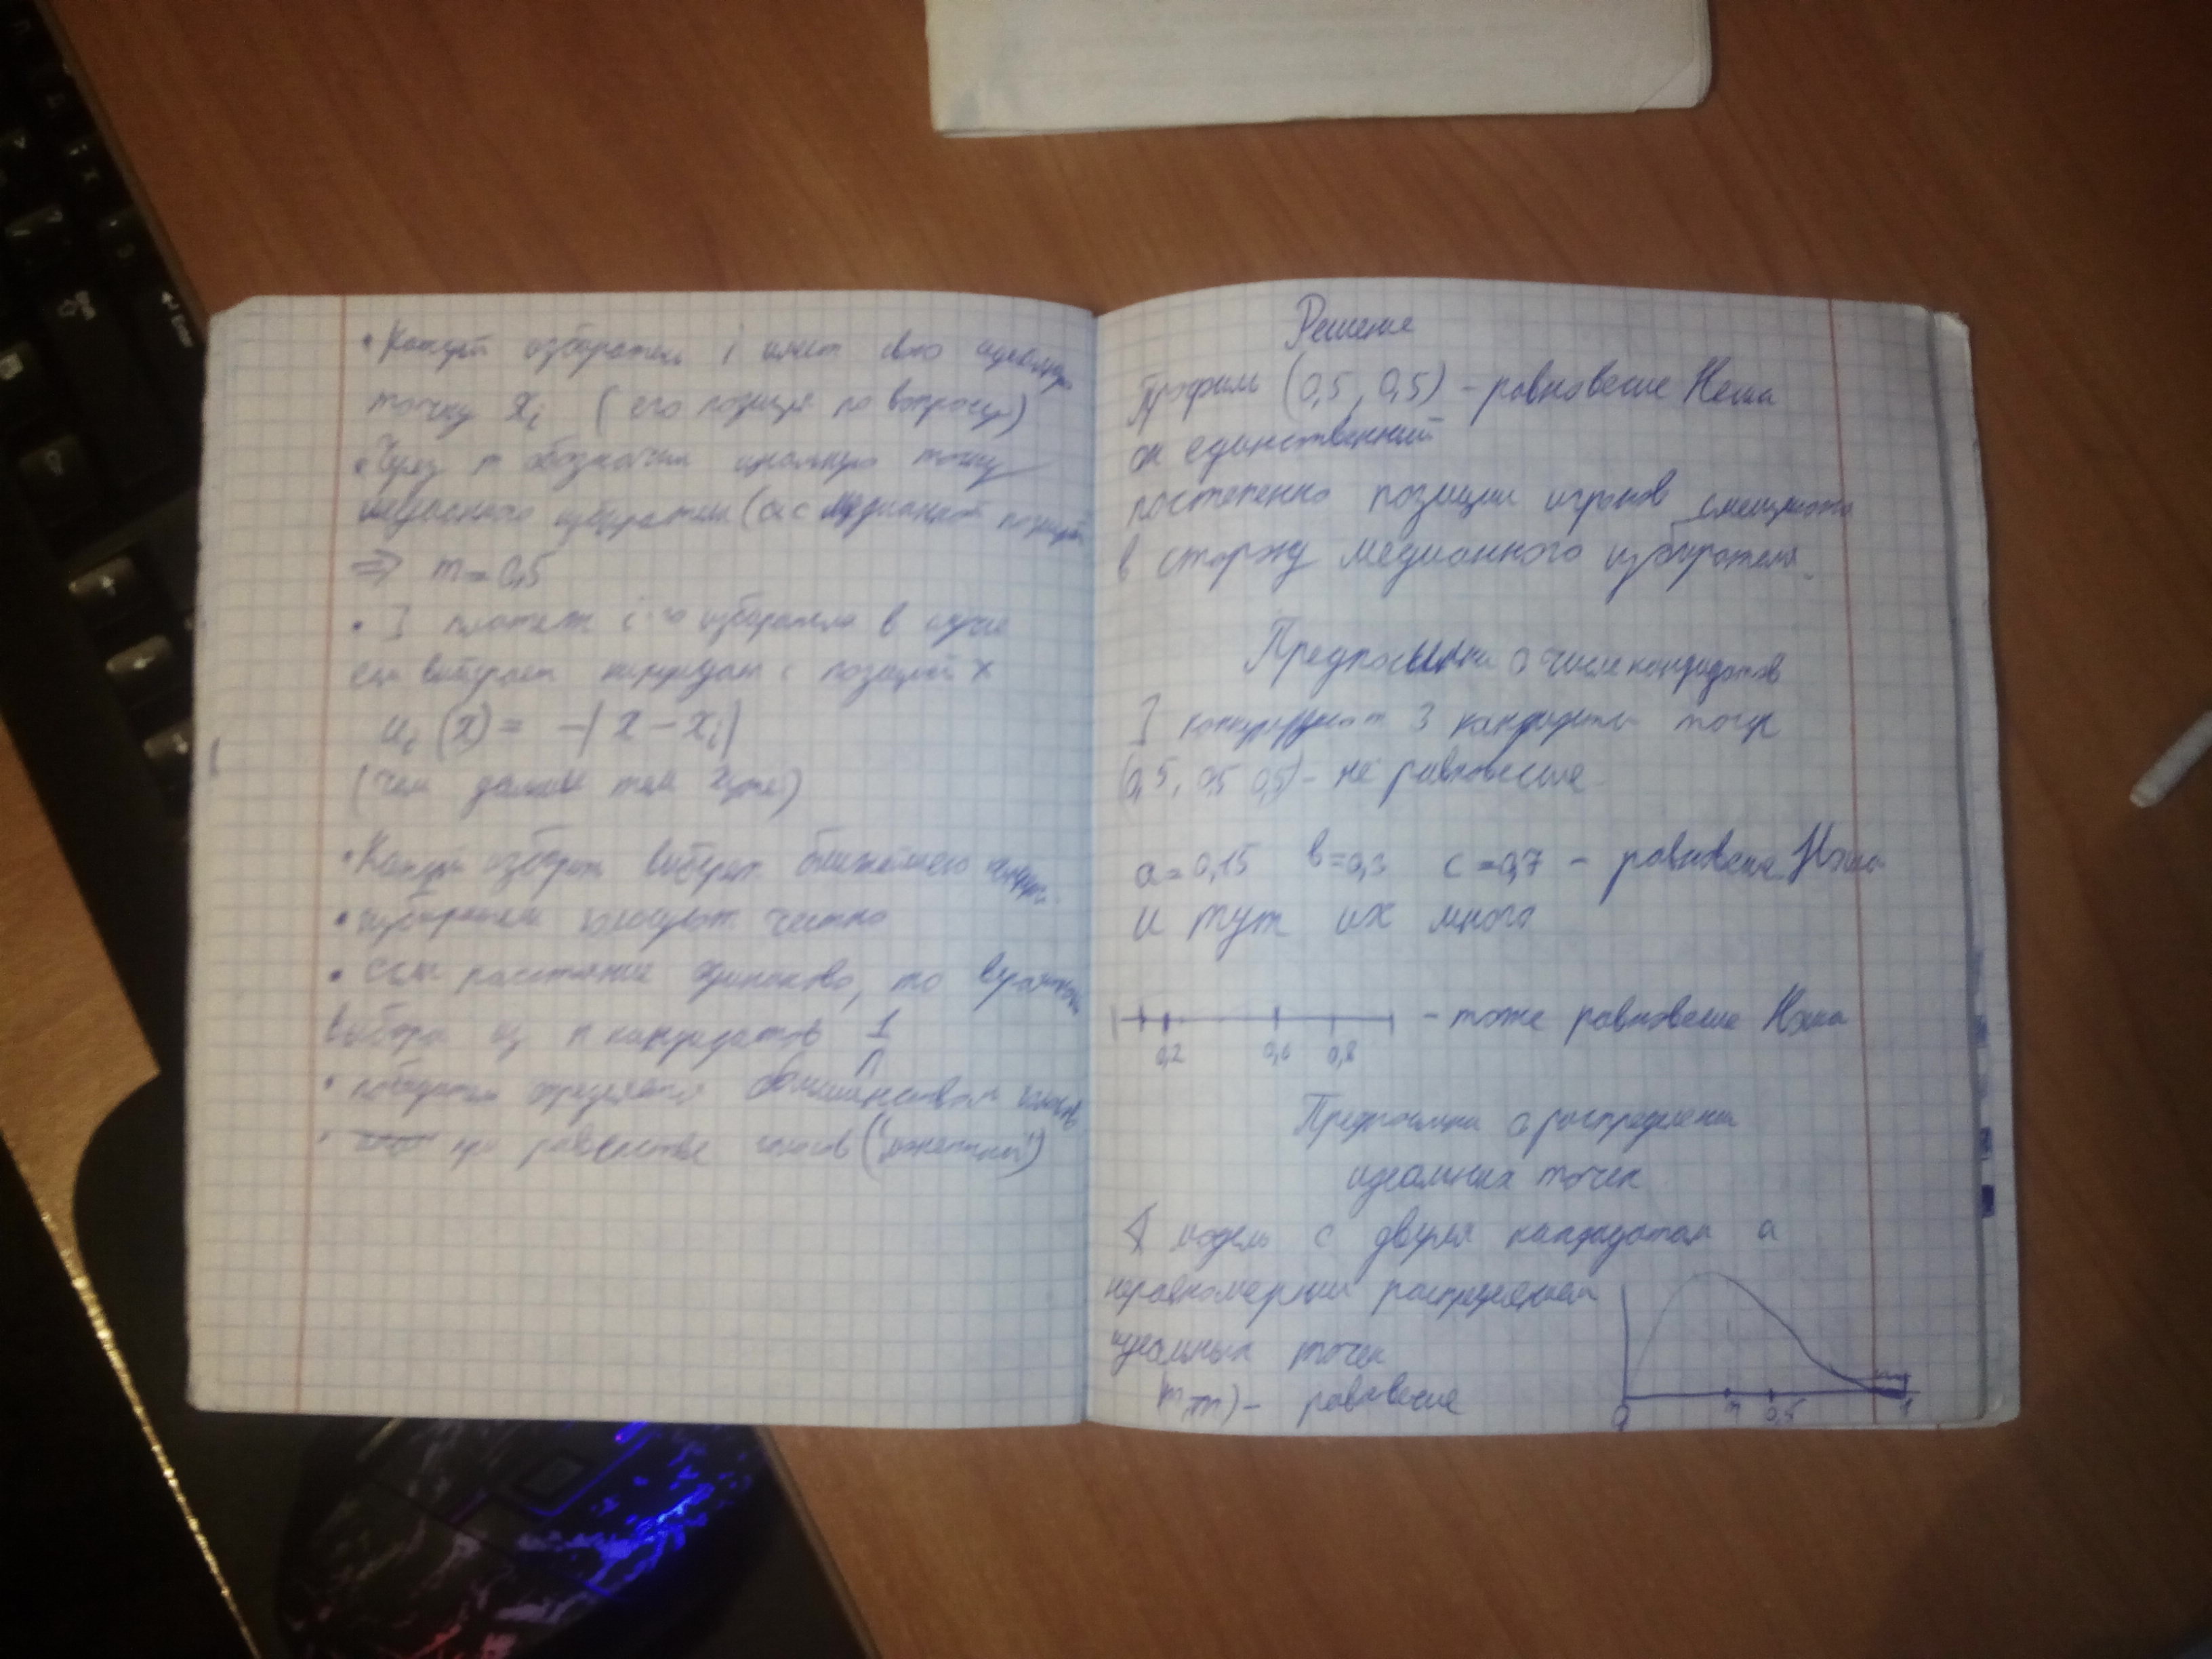 • Каждый избиратель i имеет свою идеальную
точку xᵢ (его позиция по вопросу)
• Через m обозначим идеальную точку
медианного избирателя (с медианной позицией
⇒ m = 0,5
• платеж i-го избирателя в случае
если выиграет кандидат с позицией x
uᵢ(x) = -|x - xᵢ|
(чем дальше тем хуже)
• Каждый избират выберет ближайшего
• избиратели голосуют честно
• если расстояние одинаково, то вероятность
выбора из n кандидатов 1/n
• победитель определяется большинством голосов
• при равенстве голосов ("монеткой")
Решение
Профиль (0,5, 0,5) - равновесие Неша
он единственный
постепенно позиции игроков смещаются
в сторону медианного избирателя.
Предпосылка о числе кандидатов
конкурируют 3 кандидата тогда
(0,5, 0,5 0,5) - не равновесие
a = 0,15 b = 0,3 c = 0,7 - равновесие Нэша
и тут их много
- тоже равновесие Нэша
0,2 0,6 0,8
Предпосылка о распределении
идеальных точек
модель с двумя кандидатами а
неравномерным распределением
идеальных точек
m, m) - равновесие
0 m 0,5 1